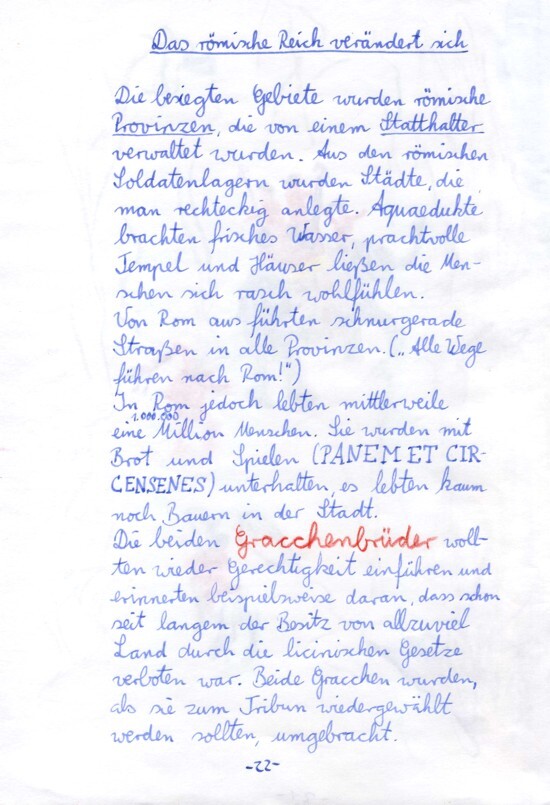 Das römische Reich verändert sich
Die besiegten Gebiete wurden römische
Provinzen, die von einem Statthalter
verwaltet wurden. Aus den römischen
Soldatenlagern wurden Städte, die
man rechteckig anlegte. Aquaedukte
brachten frisches Wasser, prachtvolle
Tempel und Häuser ließen die Men-
schen sich rasch wohlfühlen.
Von Rom aus führten schnurgerade
Straßen in alle Provinzen. („Alle Wege
führen nach Rom!")
In Rom jedoch lebten mittlerweile
1.000.000
eine Million Menschen. Sie wurden mit
Brot und Spielen (PANEM ET CIR-
CENSENES) unterhalten, es lebten kaum
noch Bauern in der Stadt.
Die beiden Gracchenbrüder woll-
ten wieder Gerechtigkeit einführen und
erinnerten beispielsweise daran, dass schon
seit langem der Besitz von allzuviel
Land durch die licinischen Gesetze
verboten war. Beide Gracchen wurden,
als sie zum Tribun wiedergewählt
werden sollten, umgebracht.
-22-